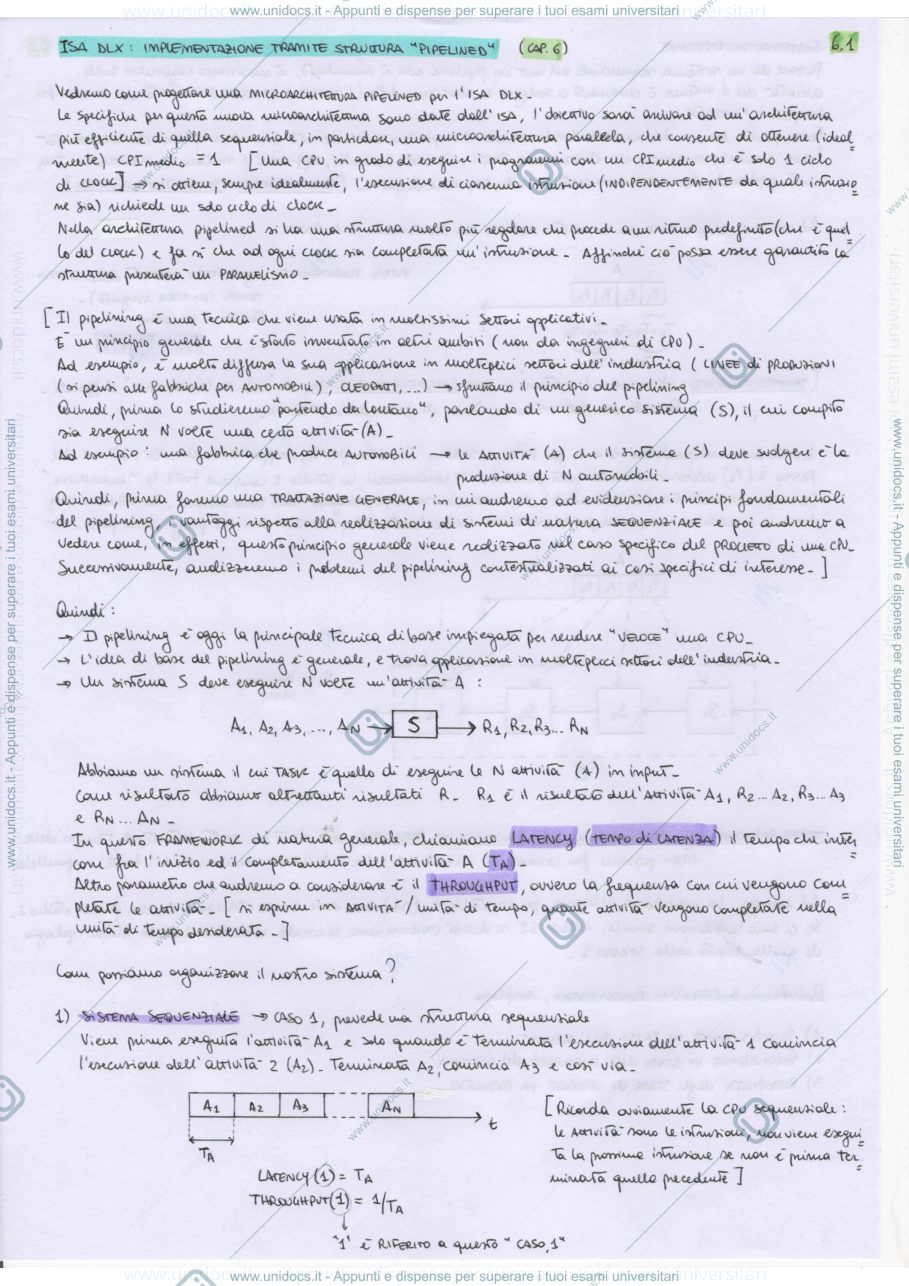 www.unidocs.it - Appunti e dispense per superare i tuoi esami universitari
ISA DLX : IMPLEMENTAZIONE TRAMITE STRUTTURA "PIPELINED" (CAP. 6)
6.1
Vedremo come progettare una MICROARCHITETTURA PIPELINED per l'ISA DLX.
Le specifiche per questa nuova microarchitettura sono date dall'ISA, l'obiettivo sarà arrivare ad un'architettura
più efficiente di quella sequenziale, in particolare, una microarchitettura parallela, che consente di ottenere (ideal
mente) CPI medio = 1 [Una CPU in grado di eseguire i programmi con un CPI medio che è solo 1 ciclo
di CLOCK] → si ottiene, sempre idealmente, l'esecuzione di ciascuna istruzione (INDIPENDENTEMENTE da quale istruzio
ne sia) richiede un solo ciclo di clock_
Nella architettura pipelined si ha una struttura molto più regolare che procede a un ritmo predefinito (che è quel
lo del CLOCK) e fa sì che ad ogni CLOCK sia completata un'istruzione _ Affinché ciò possa essere garantito la
struttura presenterà un PARALLELISMO _
[Il pipelining è una tecnica che viene usata in moltissimi settori applicativi_
E' un principio generale che è stato inventato in altri ambiti (non da ingegneri di CPU)_
Ad esempio, è molto diffusa la sua applicazione in molteplici settori dell'industria (LINEE di PRODUZIONI
(si pensi alle fabbriche per AUTOMOBILI), ...) → sfruttano il principio del pipelining
Quindi, prima lo studieremo "partendo da lontano", parlando di un generico sistema (S), il cui compito
sia eseguire N volte una certa attività (A)_
Ad esempio : una fabbrica che produce AUTOMOBILI → le ATTIVITÀ (A) che il sistema (S) deve svolgere è la
produzione di N automobili_
Quindi, prima faremo una TRATTAZIONE GENERALE, in cui andremo ad evidenziare i principi fondamentali
del pipelining, i vantaggi rispetto alla realizzazione di sistemi di natura SEQUENZIALE e poi andremo a
vedere come, in effetti, questo principio generale viene realizzato nel caso specifico del PROGETTO di una CPU_
Successivamente, analizzeremo i problemi del pipelining contestualizzati ai casi specifici di interesse_ ]
Quindi :
→ Il pipelining è oggi la principale tecnica di base impiegata per rendere "VELOCE" una CPU_
→ L'idea di base del pipelining è generale, e trova applicazione in molteplici settori dell'industria_
→ Un sistema S deve eseguire N volte un'attività A :
A1, A2, A3, ..., AN → S → R1, R2, R3... RN
Abbiamo un sistema il cui TASK è quello di eseguire le N attività (A) in input_
Come risultato abbiamo altrettanti risultati R_ R1 è il risultato dell'Attività A1, R2... A2, R3... A3
e RN ... AN _
In questo FRAMEWORK di natura generale, chiamiamo LATENCY (TEMPO di LATENZA) il tempo che inter
corre fra l'inizio ed il completamento dell'attività A (TA)_
Altro parametro che andremo a considerare è il THROUGHPUT, ovvero la frequenza con cui vengono com
pletate le attività_ [si esprime in ATTIVITÀ/unità di tempo, quante attività vengono completate nella
unità di tempo desiderata_]
Come possiamo organizzare il nostro sistema?
1) SISTEMA SEQUENZIALE → CASO 1, prevede una struttura sequenziale
Viene prima eseguita l'attività A1 e solo quando è terminata l'esecuzione dell'attività 1 comincia
l'esecuzione dell'attività 2 (A2)_ Terminata A2, comincia A3 e così via_
A1 A2 A3 AN t
TA
[Ricorda ovviamente la CPU sequenziale :
le attività sono le istruzioni, non viene esegui
ta la prossima istruzione se non è prima ter
minata quella precedente]
LATENCY(1) = TA
THROUGHPUT(1) = 1/TA
"1" è RIFERITO a questo "CASO 1"
www.unidocs.it - Appunti e dispense per superare i tuoi esami universitari
www.unidocs.it - Appunti e dispense per superare i tuoi esami universitari
www.unidocs.it - Appunti e dispense per superare i tuoi esami universitari